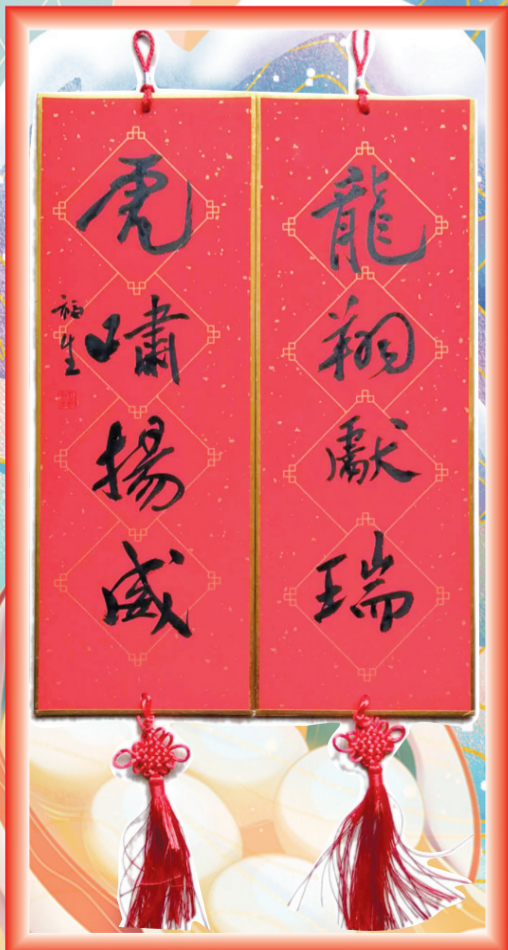 龍翔獻瑞
虎嘯揚威
福生